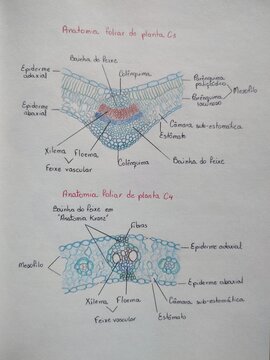 Anatomia Foliar de planta C3
Bainha do feixe
Colênquima
Epiderme
adaxial
Parênquima
paliçádico
Mesofilo
Parênquima
lacunoso
Epiderme
abaxial
Câmara sub-estomática
Estômato
Xilema
Floema
Feixe vascular
Colênquima
Bainha do Feixe
Anatomia Foliar de planta C4
Bainha do feixe em
"Anatomia Kranz"
Fibras
Epiderme adaxial
Mesofilo
Epiderme abaxial
Xilema
Floema
Câmara sub-estomática
Feixe vascular
Estômato